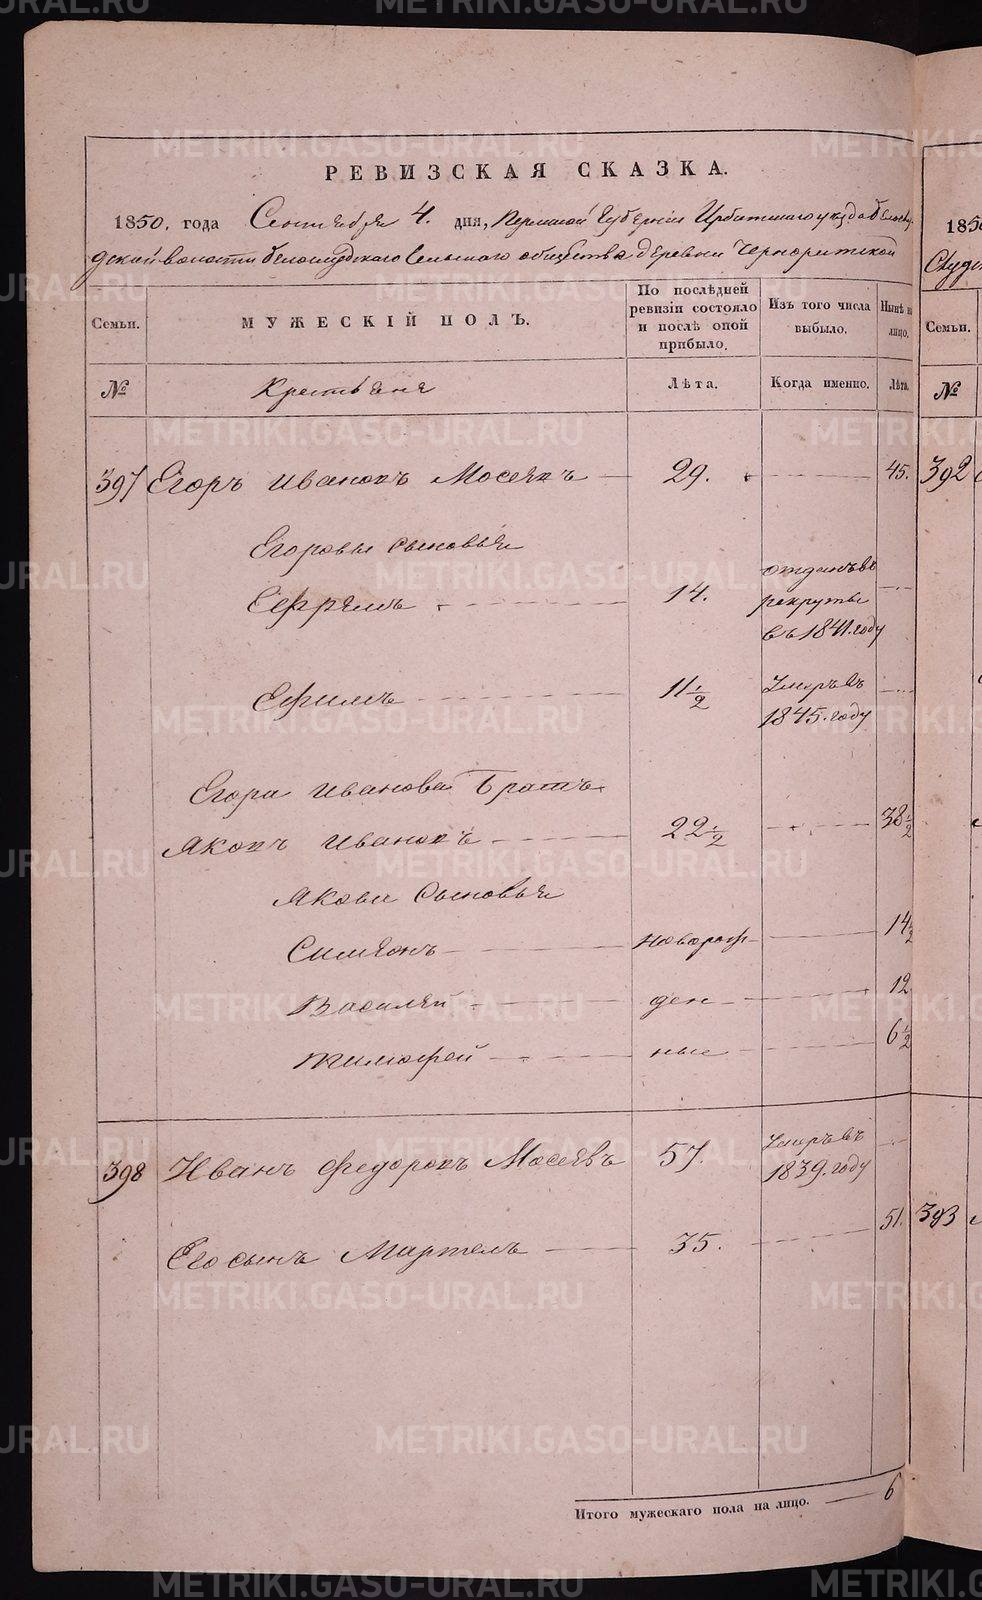 METRIKI.GASO-URAL.RU
РЕВИЗСКАЯ СКАЗКА.
1850. года Сентября 4. дня, Пермской Губернии Ирбитскаго уѣзда Белослу
дской волости белослудскаго Сельскаго общества деревни Чернорицкой
Семьи.
МУЖЕСКІЙ ПОЛЪ.
По послѣдней ревизіи состояло и послѣ оной прибыло.
Изъ того числа выбыло.
Нынѣ на лицо.
№
Крестьяне
Лѣта.
Когда именно.
Лѣта.
397 Егоръ Ивановъ Мосеевъ 29. 45.
Егоровы сыновья
Ефремъ 14. отданъ въ рекруты въ 1841. году
Ефимъ 11 1/2 Умръ въ 1845. году
Егора Иванова Братъ
Яковъ Ивановъ 22 1/2 38 1/2
Якова Сыновья
Симеонъ новорож 14 1/2
Василей ден 12
Тимофей ные 6 1/2
398 Иванъ Федоровъ Мосеевъ 57. Умръ въ 1839. году
Его сынъ Мартемъ 35. 51.
Итого мужескаго пола на лицо. 6
185
Слудс
Семьи.
№
392
393